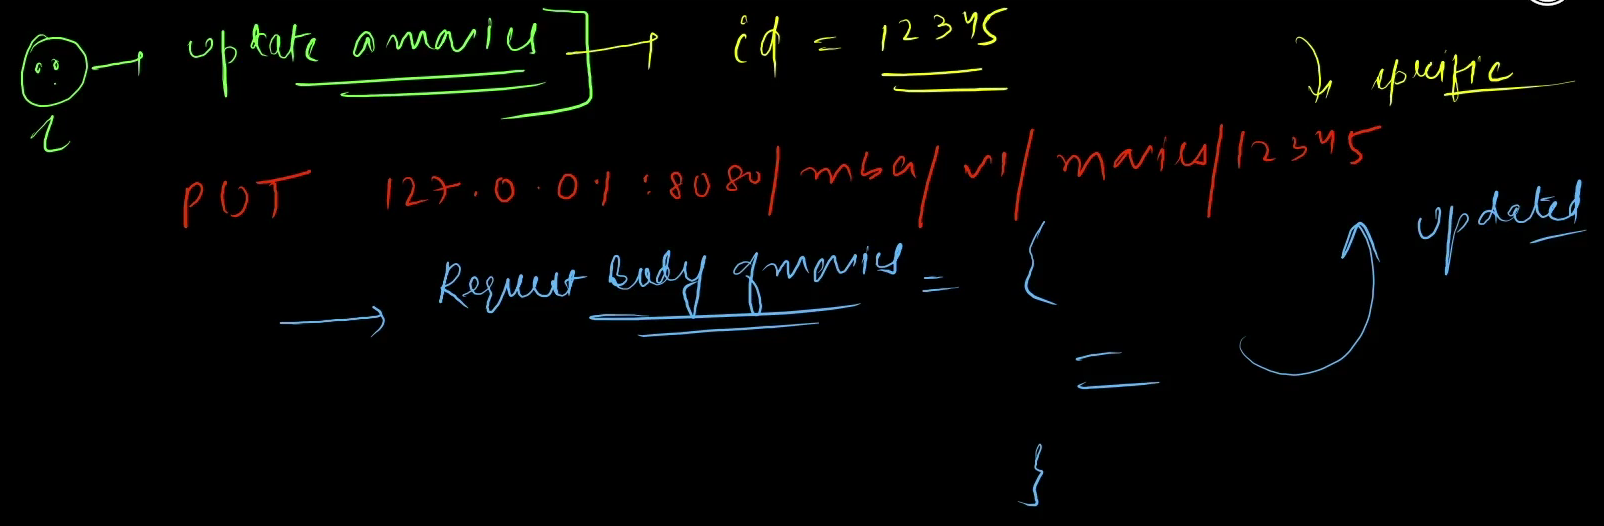 update a movies → id = 12345
specific
PUT 127.0.0.1:8080/mba/v1/movies/12345
updated
→ Request Body of movies = {
}